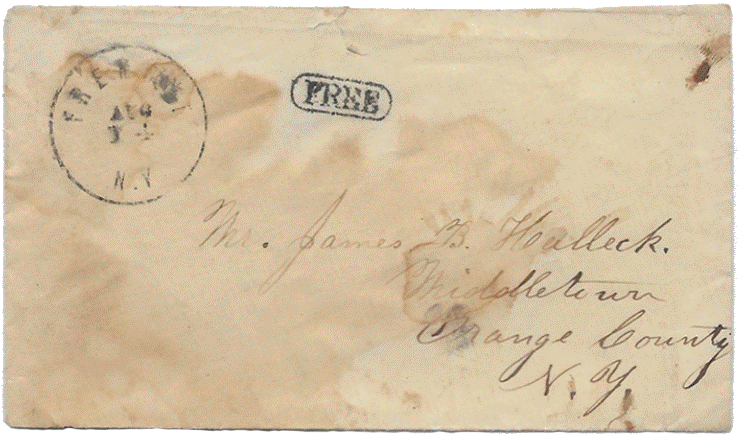 AUG
N.Y
FREE
Mr. James B. Halleck.
Middletown
Orange County
N. Y.